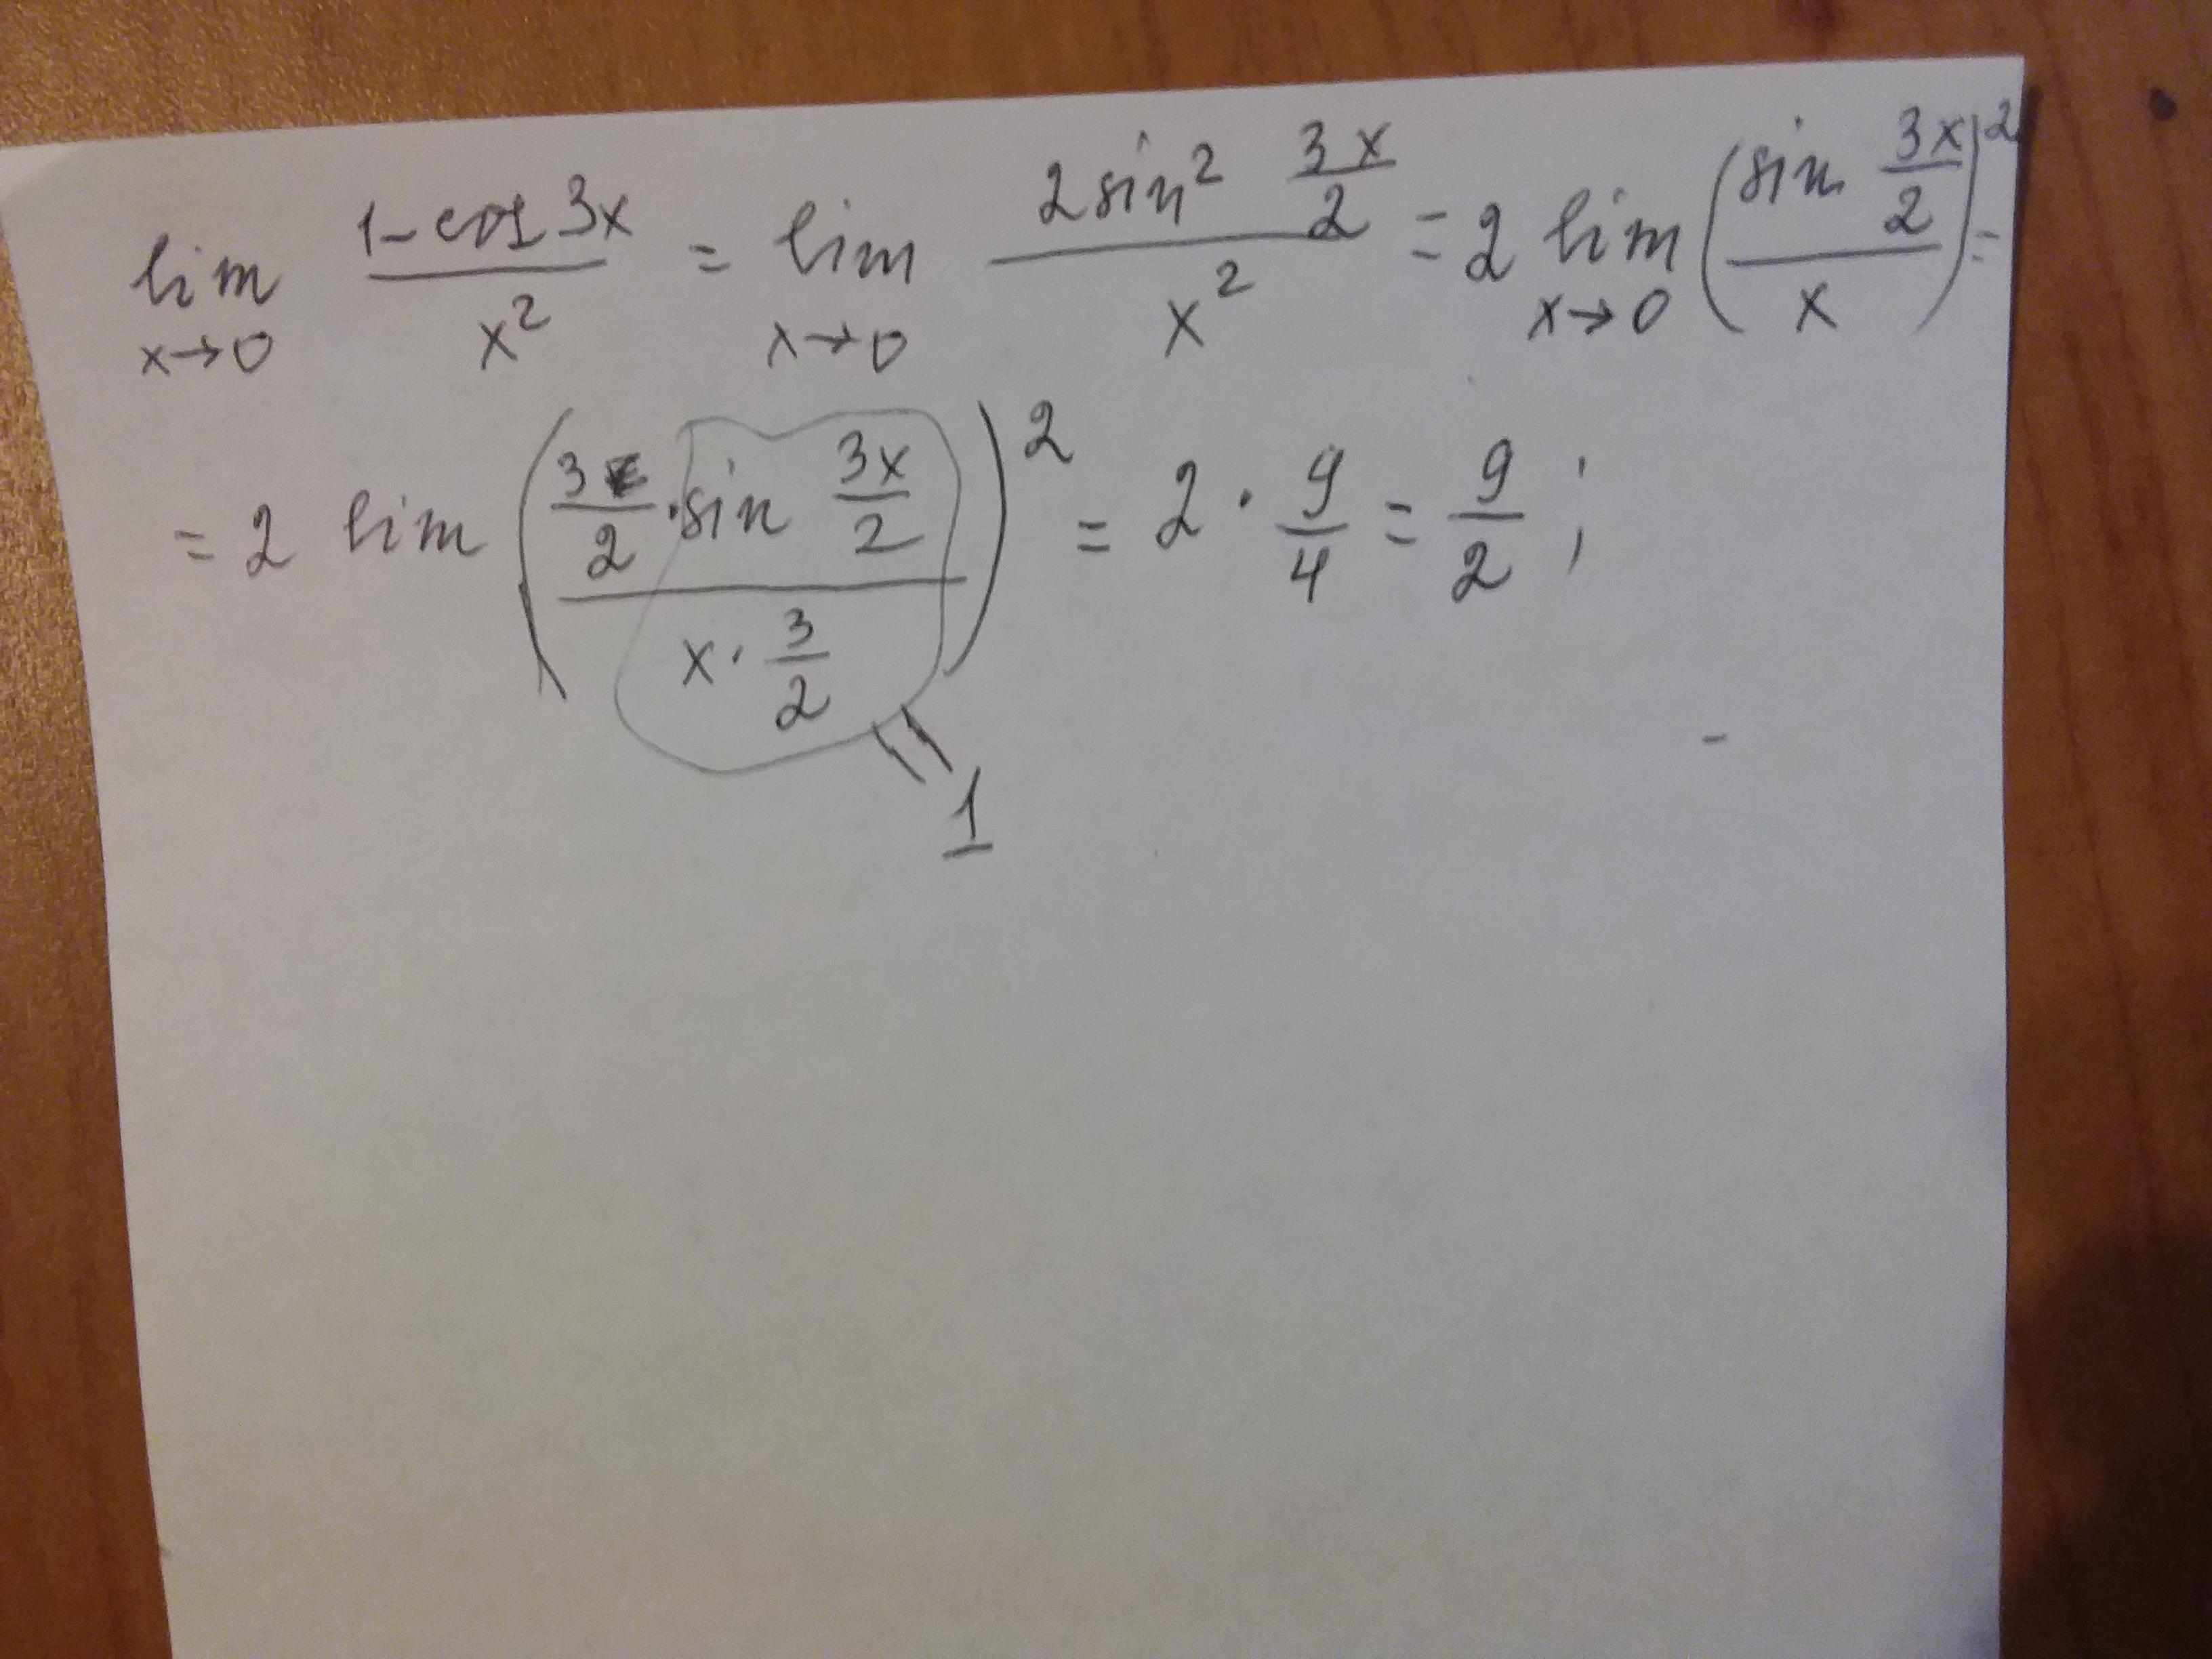 lim x→0 (1-cos 3x)/x² = lim x→0 (2 sin² 3x/2)/x² = 2 lim x→0 ((sin 3x/2)/x)² =
= 2 lim ((3/2 · sin 3x/2)/(x · 3/2))² = 2 · 9/4 = 9/2 ;
= 1